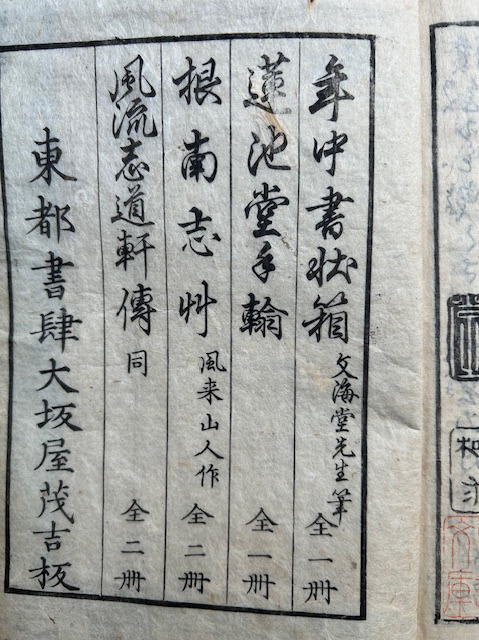 年中書状箱 文海堂先生筆 全一冊
蓮池堂手翰 全一冊
根南志艸 風来山人作 全二冊
風流志道軒傳 同 全二冊
東都書肆大坂屋茂吉板